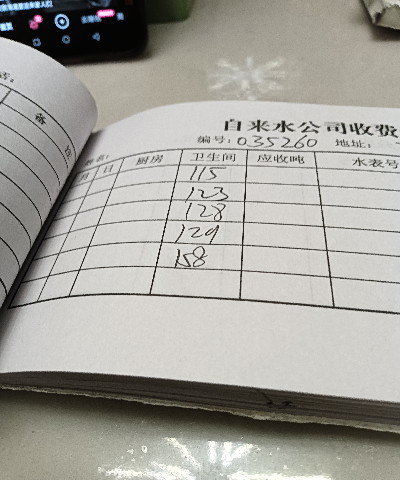 备
自来水公司收费
编号: 035260 地址:
月 日 厨房 卫生间 应收吨 水表号
115
123
128
129
158